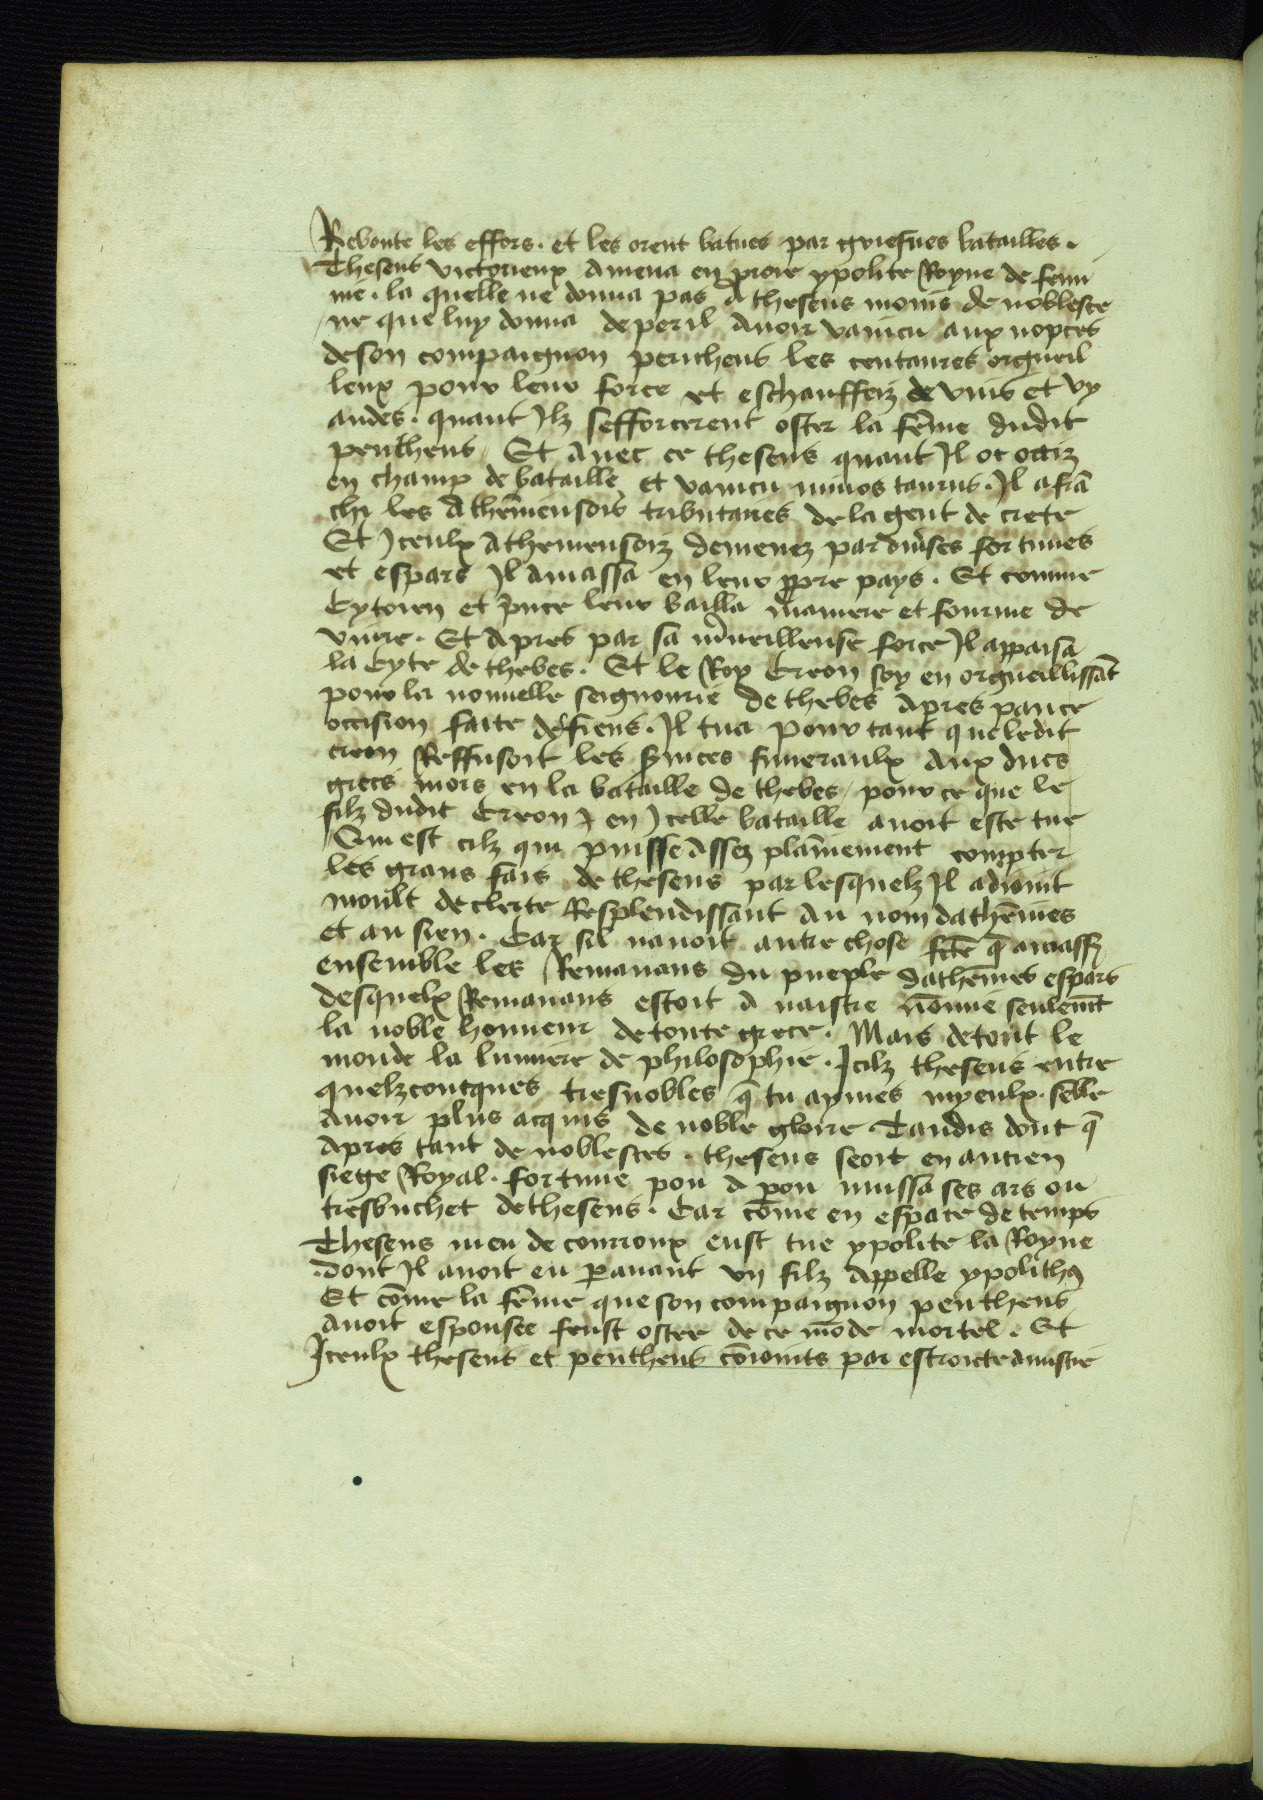 Reboute les effors. et les orent batues par griefues batailles.
Theseus victorieux amena en proie ypolite Royne de fem
me. la quelle ne donna pas a theseus moins de noblesce
ne que luy donna de peril auoir vaincu aux nopces
de son compaignon peritheus les centaures orgueil
leux pour leur force et eschauffez de vins et vy
andes. quant Ilz sefforcerent oster la fēme dudit
peritheus Et auec ce theseus quant Il ot occiz
en champ de bataille et vaincu minos taurus. Il afrā
chi les Athēniensois tributaires de la gent de crete
Et Iceulx Atheniensoiz demenez par diu̾ses fortunes
et espars Il amassa en leur ꝓpre pays. Et comme
Cytoien et p̾nce leur bailla maniere et fourme de
viure. Et apres par sa m̾ueilleuse force Il appaisa
la Cyte de thebes. Et le Roy Creon soy en orgueillissāt
pour la nouuelle seignourie de thebes apres pance
occision faite de siens. Il tua pour tant que ledit
creon Reffusoit les s̾uices funeraulx aux ducs
grecs mors en la bataille de thebes pour ce que le
filz dudit Creon en Icelle bataille auoit este tue
Qui est cilz qui puisse assez plainement compter
les grans fais de theseus par lesquelz Il adiouit
moult de clerte Resplendissant au nom dathēnies
et au sien. Car sil nauoit autre chose fcte q̄ amasse
ensemble les Remanans du pueple dathēnes espars
desquelx Remanans estoit a naistre nōmie seulemt̄
la noble honneur de toute grece. Mais de tout le
monde la lumiere de philosophie. Icilz theseus entre
quelzconcques tresnobles q̄ tu aymes myeulx. sēble
auoir plus acquis de noble gloire Tandis dont q̄
apres tant de noblesces. theseus seoit en ancien
siege Royal. fortune pou a pou mussa ses ars ou
tresbuchet de theseus. Car cōme en espace de temps
Theseus meu de courroux eust tue ypolite la Royne
dont Il auoit eu ꝑauant vn filz appelle ypolithꝯ
Et cōme la fēme que son compaignon peritheus
auoit espousee feust ostee de ce mōde mortel. Et
Iceulx theseus et peritheus cōioints par estroicte amistie